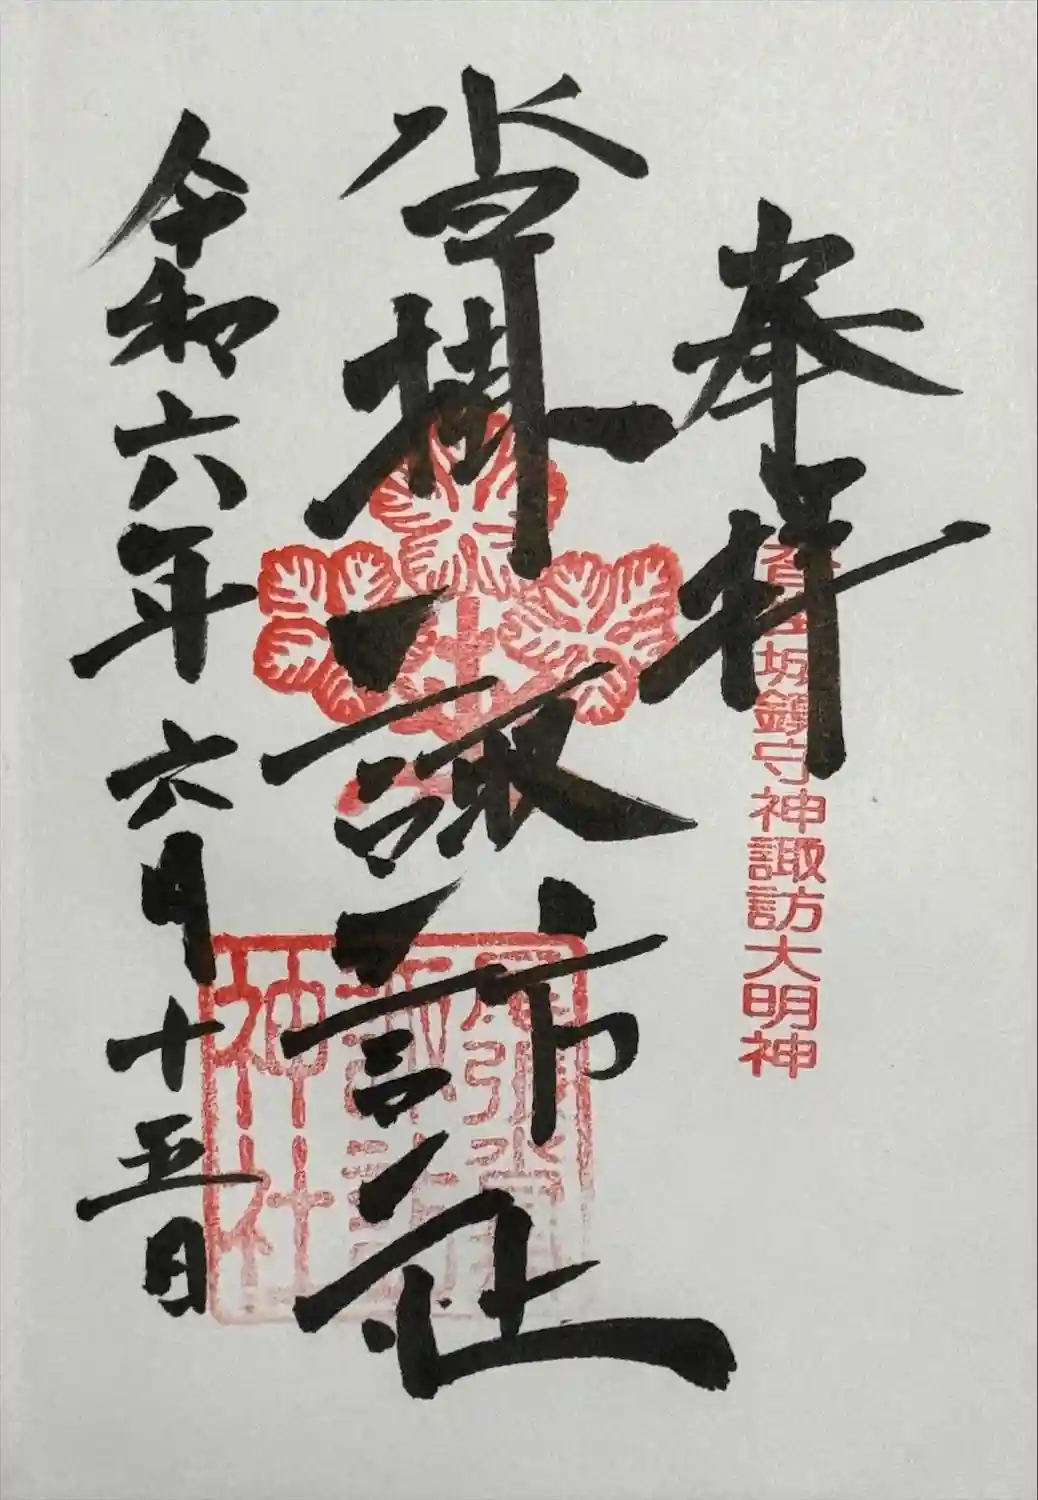 奉拝
坂鎮守神諏訪大明神
沓掛諏訪社
諏訪
神社
令和六年六月十五日